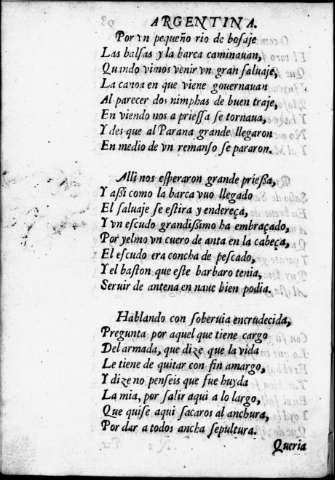 ARGENTINA.
Por vn pequeño rio de bosaje
Las balsas y la barca caminauan,
Quando vimos venir vn gran saluaje,
La canoa en que viene gouernauan
Al parecer dos nimphas de buen traje,
En viendo nos a priessa se tornaua,
Y des que al Parana grande llegaron
En medio de vn remanso se pararon.
Alli nos esperaron grande priessa,
Y assi como la barca vuo llegado
El saluaje se estira y endereça,
Y vn escudo grandissimo ha embraçado,
Por yelmo vn cuero de anta en la cabeça,
El escudo era concha de pescado,
Y el baston que este barbaro tenia,
Seruir de antena en naue bien podia.
Hablando con soberuia encrudecida,
Pregunta por aquel que tiene cargo
Del armada, que dize que la vida
Le tiene de quitar con fin amargo,
Y dize no penseis que fue huyda
La mia, por salir aqui a lo largo,
Que quise aqui sacaros al anchura,
Por dar a todos ancha sepultura.
Queria